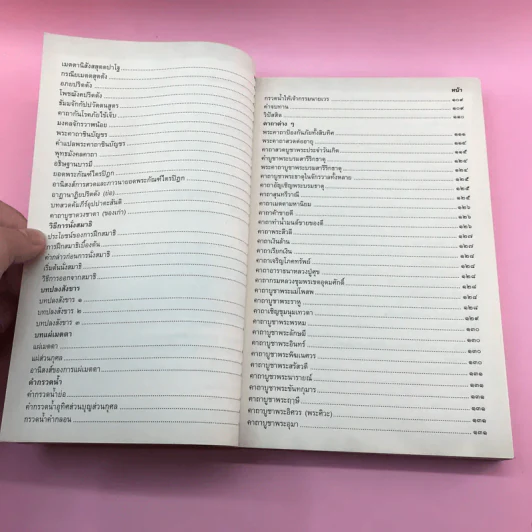 เมตตานิสังสสุตตปาโฐ
กรณียเมตตสูตตัง
อภยปริตตัง
โพชฌังคปริตตัง
ธัมมจักกัปปวัตตนสูตร
คาถากันโรคภัยไข้เจ็บ
มงคลจักรวาฬน้อย
พระคาถาชินบัญชร
คำแปลพระคาถาชินบัญชร
พุทธมังคลคาถา
อธิษฐานบารมี
ยอดพระกัณฑ์ไตรปิฏก
อานิสงส์การสวดและภาวนายอดพระกัณฑ์ไตรปิฏก
อาฏานาฏิยปริตตัง (ย่อ)
บทสวดคัมภีร์อุปปาตะสันติ
คาถาบูชาดวงชาตา (ของเก่า)
วิธีการนั่งสมาธิ
ประโยชน์ของการฝึกสมาธิ
การฝึกสมาธิเบื้องต้น
คำกล่าวก่อนการนั่งสมาธิ
เริ่มต้นนั่งสมาธิ
วิธีการออกจากสมาธิ
บทปลงสังขาร
บทปลงสังขาร ๑
บทปลงสังขาร ๒
บทปลงสังขาร ๓
บทแผ่เมตตา
แผ่เมตตา
แผ่ส่วนกุศล
อานิสงส์ของการแผ่เมตตา
คำกรวดน้ำ
คำกรวดน้ำย่อ
คำกรวดน้ำอุทิศส่วนบุญส่วนกุศล
กรวดน้ำคำกลอน
หน้า
กรวดน้ำให้เจ้ากรรมนายเวร ๑๐๙
คำจบทาน ๑๐๙
วินัสสิต
คาถาต่าง ๆ
พระคาถาป้องกันภัยทั้งสิบทิศ ๑๑๑
พระคาถาสวดต่ออายุ ๑๑๑
คาถาสวดบูชาพระประจำวันเกิด
คำบูชาพระบรมสารีริกธาตุ ๑๒๔
พระคาถาบูชาพระบรมสารีริกธาตุ ๑๒๔
คำบูชาพระธาตุในจักรวาลทั้งหลาย ๑๒๕
คาถาอัญเชิญพระบรมธาตุ ๑๒๕
คาถาสุนทรีวาณี ๑๒๕
คาถาเมตตามหานิยม ๑๒๖
คาถาค้าขายดี ๑๒๖
คาถาทำน้ำมนต์ขายของดี ๑๒๖
คาถาพระสีวลี ๑๒๗
คาถาเงินล้าน ๑๒๗
คาถาเรียกเงิน ๑๒๗
คาถาเจริญโภคทรัพย์ ๑๒๘
คาถาอาราธนาหลวงปู่ศุข ๑๒๘
คาถากรมหลวงชุมพรเขตอุดมศักดิ์ ๑๒๘
คาถาบูชาพระแม่โพสพ ๑๒๘
คาถาบูชาพระราหู ๑๒๘
คาถาเชิญชุมนุมเทวดา ๑๒๙
คาถาบูชาพระพรหม ๑๓๐
คาถาบูชาพระลักษมี ๑๓๐
คาถาบูชาพระอินทร์ ๑๓๐
คาถาบูชาพระพิฆเนศวร ๑๓๐
คาถาบูชาพระสรัสวดี ๑๓๐
คาถาบูชาพระนารายณ์ ๑๓๑
คาถาบูชาพระขันทกุมาร ๑๓๑
คาถาบูชาพระฤๅษี ๑๓๑
คาถาบูชาพระอิศวร (พระศิวะ) ๑๓๑
คาถาบูชาพระอุมา ๑๓๑